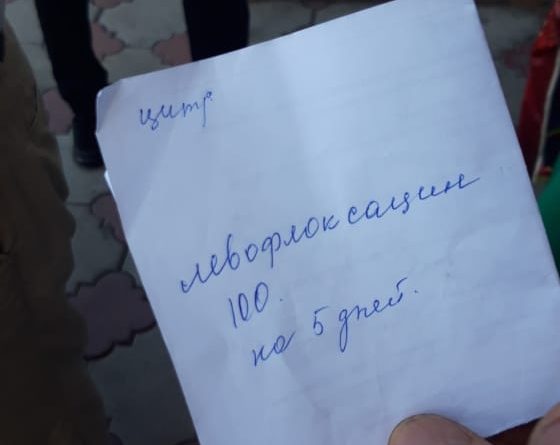 цитр
левофлоксацин
100.
на 5 дней.